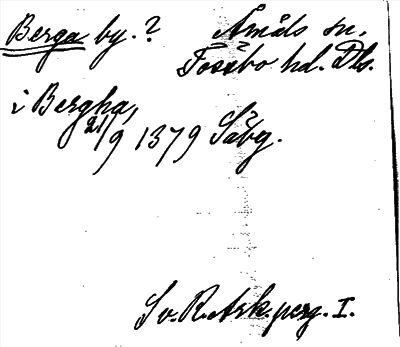 Berga by.? Åmåls sn.
Tössbo hd. Dls.
i Bergha,
21/9 1379 Såby.
Sv. R. Ark. perg. I.